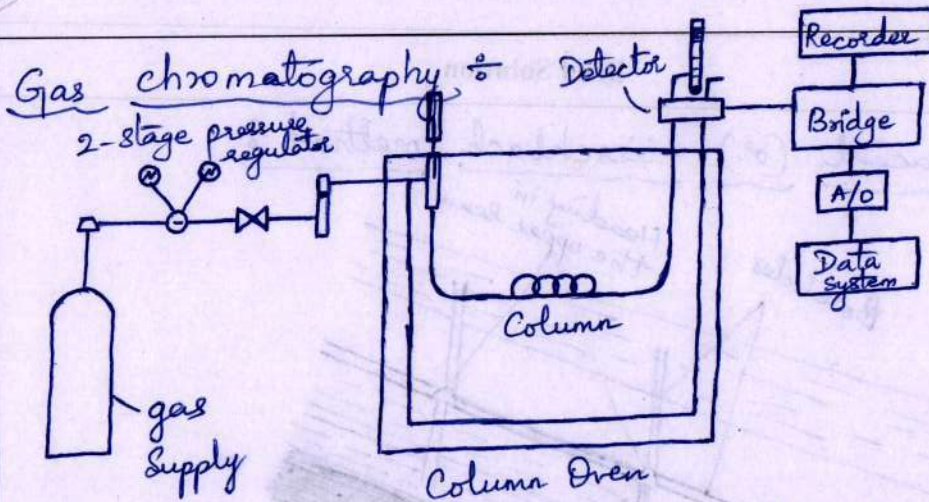 Gas chromatography :-
2-stage pressure
regulator
Detector
Recorder
Bridge
A/O
Data
system
Column
gas
Supply
Column Oven